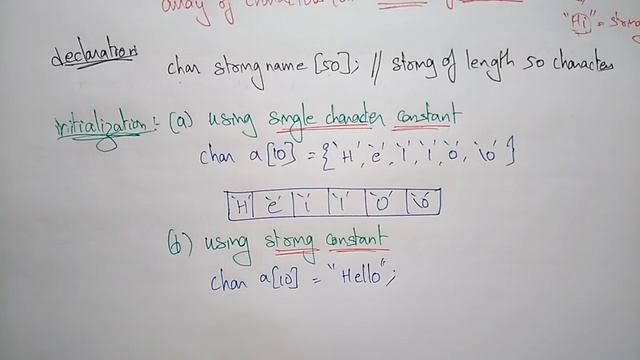 array of characters
"Hi" =
declaration: char string name [50]; // string of length 50 characters
initialization:- (a) using single character constant
char a[10] = {'H', 'e', 'l', 'l', 'o', '\0' }
'H' 'e' 'l' 'l' 'o' '\0'
(b) using string constant
char a[10] = "Hello";